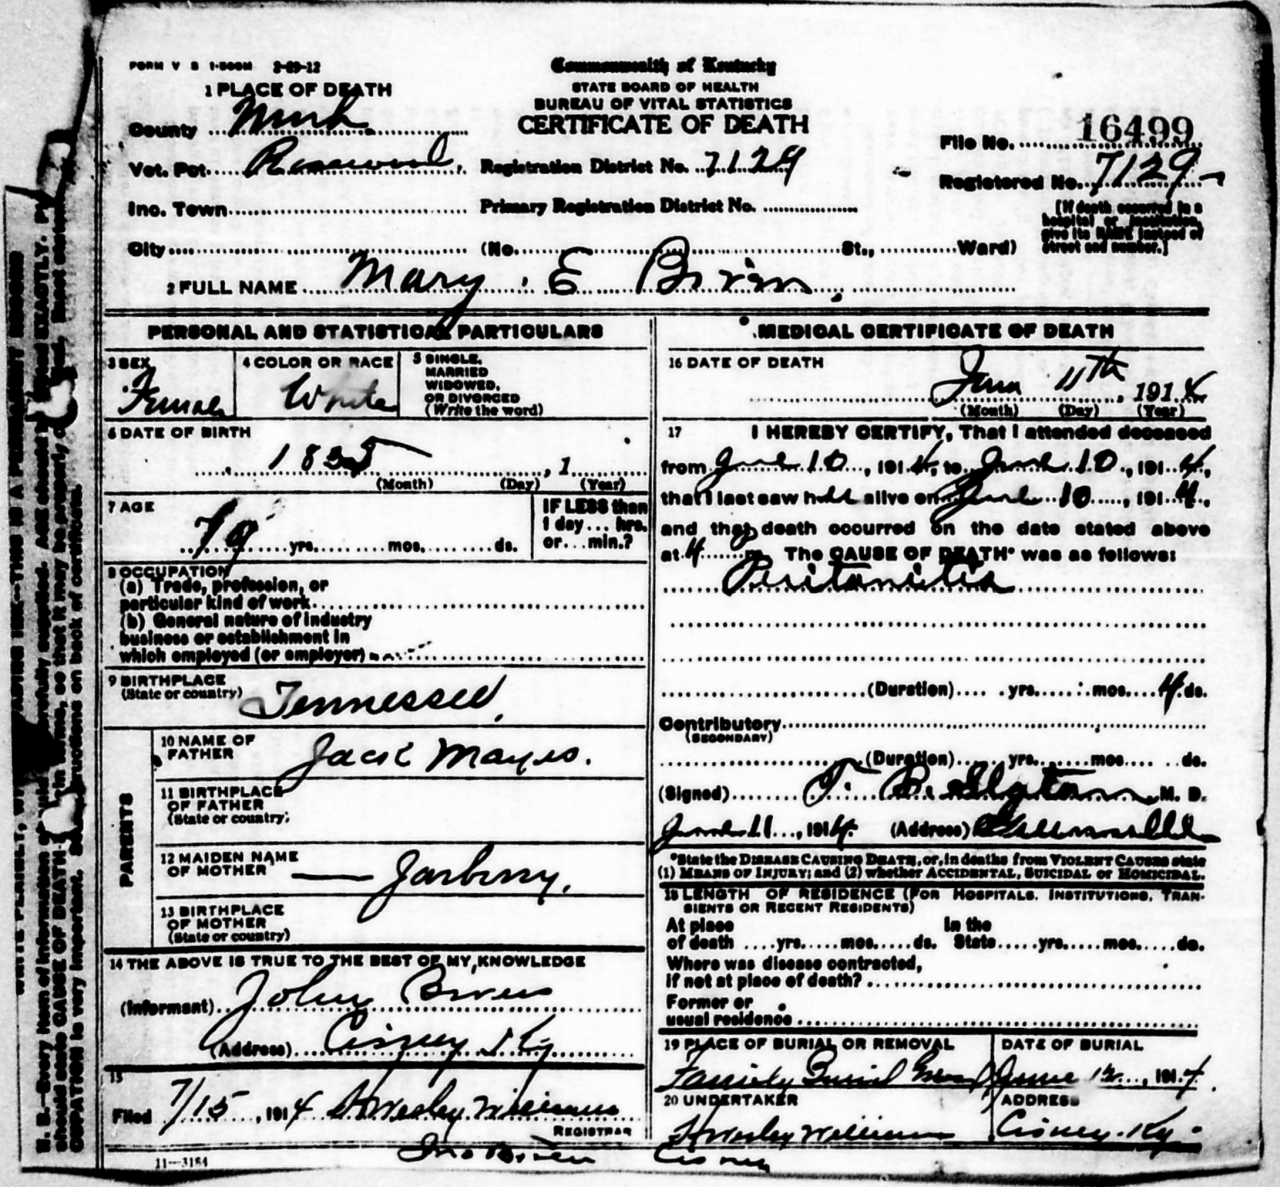 FORM V S 1-500M 2-29-12
Commonwealth of Kentucky
STATE BOARD OF HEALTH
BUREAU OF VITAL STATISTICS
CERTIFICATE OF DEATH
1 PLACE OF DEATH
County Muh.
Vot. Pct. Rosewood, Registration District No. 7129
Inc. Town Primary Registration District No.
City (No. St., Ward)
File No. 16499
Registered No. 7129
[If death occurred in a
hospital or institution,
give its NAME instead of
street and number.]
2 FULL NAME Mary E
PERSONAL AND STATISTICAL PARTICULARS
3 SEX
Female
4 COLOR OR RACE
White
5 SINGLE,
MARRIED
WIDOWED,
OR DIVORCED
(Write the word)
6 DATE OF BIRTH
1835 , 1
(Month) (Day) (Year)
7 AGE
79 yrs. mos. ds.
IF LESS than
1 day ... hrs.
or ... min.?
8 OCCUPATION
(a) Trade, profession, or
particular kind of work
(b) General nature of industry
business or establishment in
which employed (or employer)
9 BIRTHPLACE
(State or country)
Tennessee
PARENTS
10 NAME OF
FATHER
Jack Mayes.
11 BIRTHPLACE
OF FATHER
(State or country)
12 MAIDEN NAME
OF MOTHER
— Jarberry.
13 BIRTHPLACE
OF MOTHER
(State or country)
14 THE ABOVE IS TRUE TO THE BEST OF MY KNOWLEDGE
(Informant) John
(Address) Cisney Ky
15
Filed 7/15, 1914 Wesley Williams
REGISTRAR
11—3184
MEDICAL CERTIFICATE OF DEATH
16 DATE OF DEATH
June 11th, 1914
(Month) (Day) (Year)
17 I HEREBY CERTIFY, That I attended deceased
from June 10, 1914, to June 10, 1914,
that I last saw her alive on June 10, 1914,
and that death occurred on the date stated above
at 4 m. The CAUSE OF DEATH* was as follows:
Peritonitis
(Duration) yrs. mos. 4 ds.
Contributory
(SECONDARY)
(Duration) yrs. mos. ds.
(Signed) T. B. M. D.
June 11, 1914 (Address) Greenville
*State the DISEASE CAUSING DEATH, or, in deaths from VIOLENT CAUSES state
(1) MEANS OF INJURY; and (2) whether ACCIDENTAL, SUICIDAL or HOMICIDAL.
18 LENGTH OF RESIDENCE (FOR HOSPITALS, INSTITUTIONS, TRAN-
SIENTS OR RECENT RESIDENTS)
At place In the
of death yrs. mos. ds. State yrs. mos. ds.
Where was disease contracted,
If not at place of death?
Former or
usual residence
19 PLACE OF BURIAL OR REMOVAL
Family Burial
DATE OF BURIAL
June 12, 1914
20 UNDERTAKER
Wesley Williams
ADDRESS
Cisney Ky
Cisney